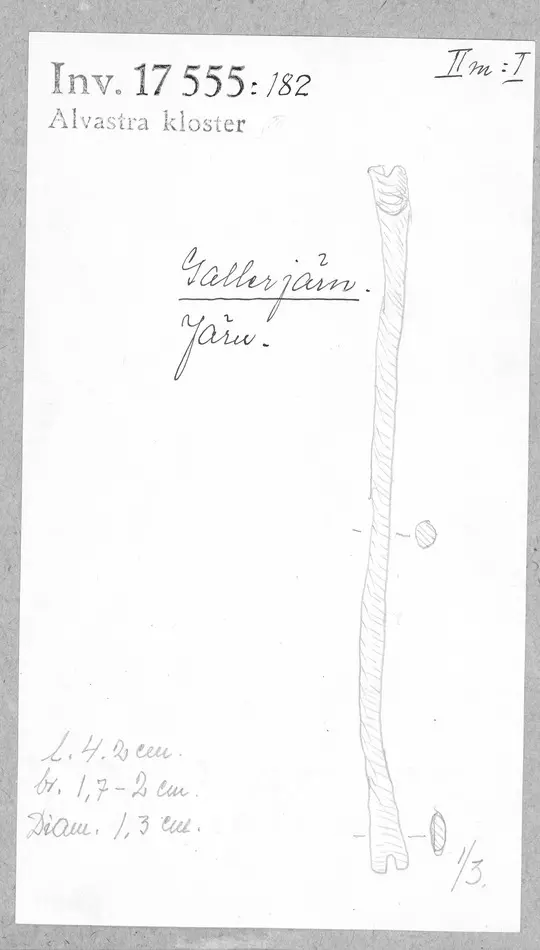 Inv. 17 555:182
IIm:I
Alvastra kloster
Gallerjärn.
Järn.
L. 4.2 cm.
br. 1,7-2 cm.
Diam. 1,3 cm.
1/3.